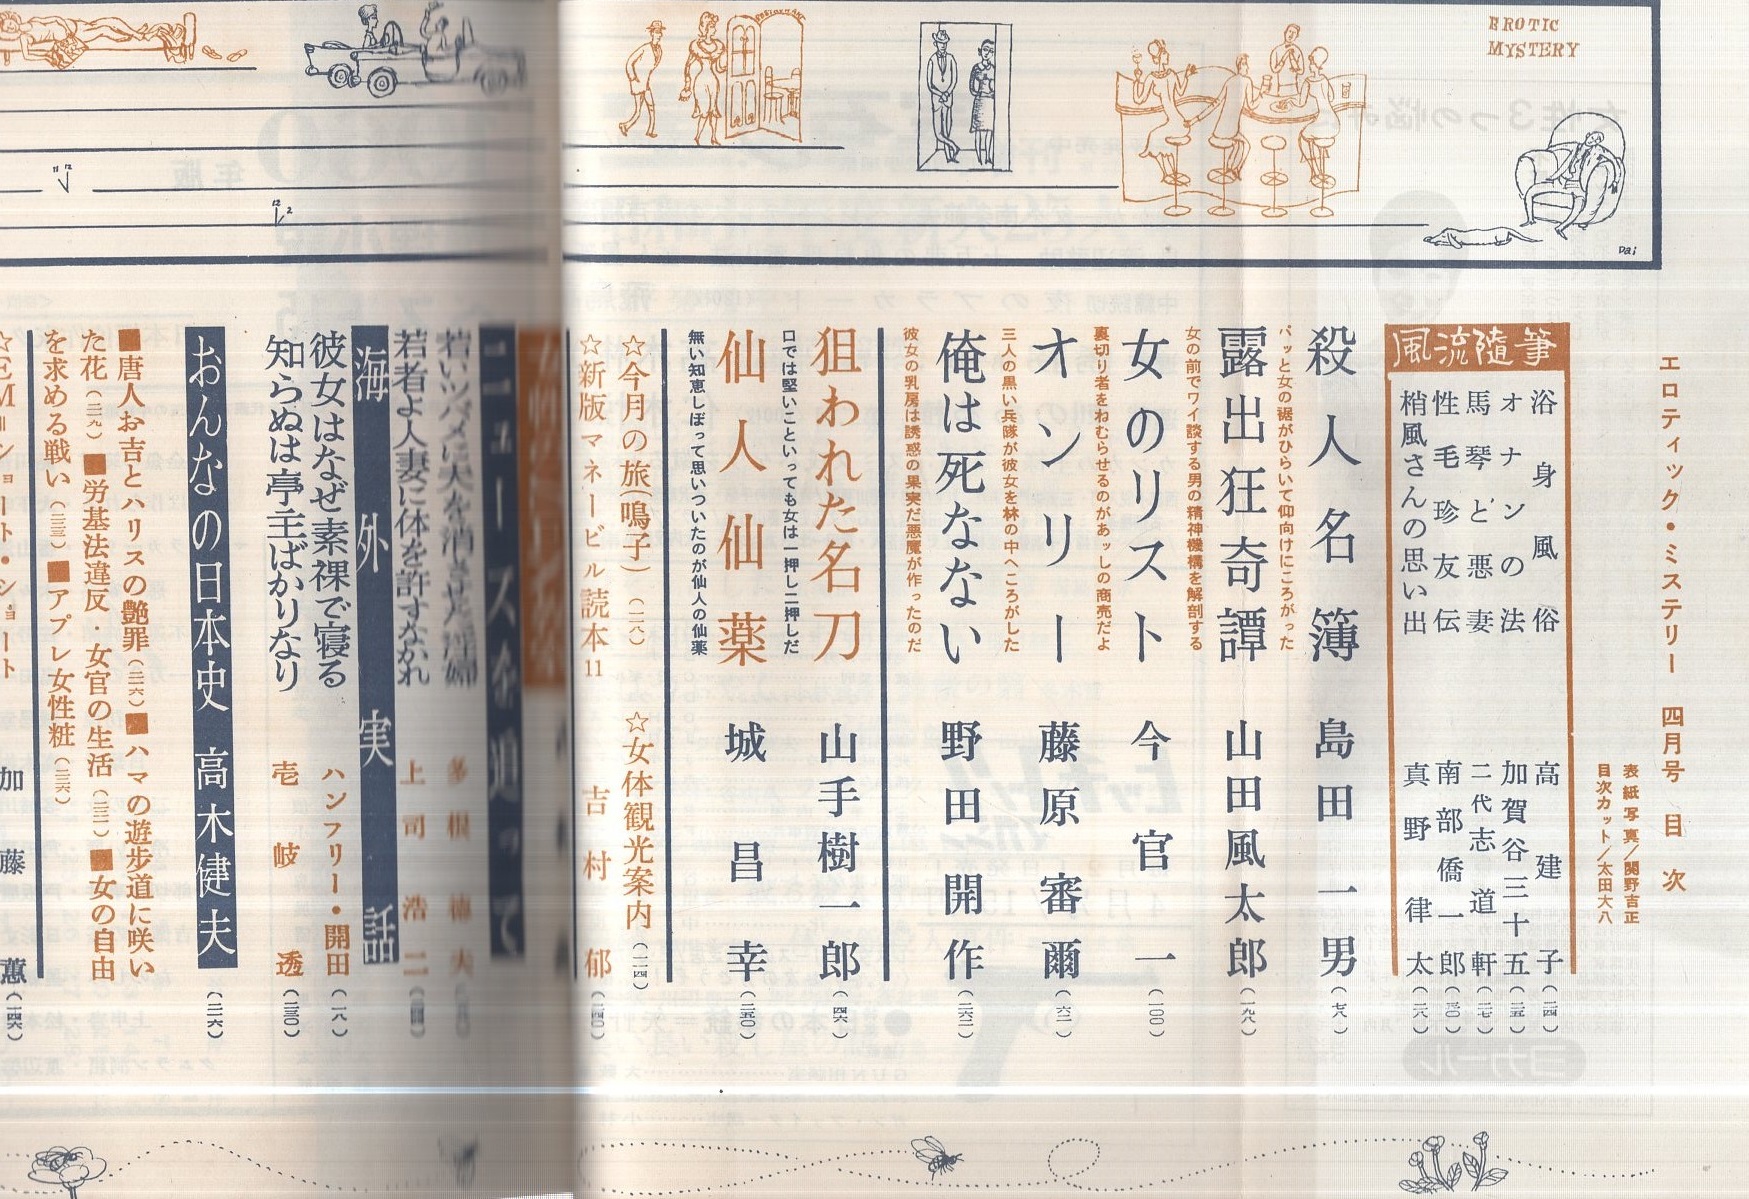 EROTIC
MYSTERY
Dai
エロティック・ミステリー 四月号 目次
表紙写真/関野吉正
目次カット/太田大八
風流随筆
浴身風俗 高建子(二四)
オナンの法 加賀谷三十五(二五)
馬琴と悪妻 二代志道軒(二七)
性毛珍友伝 南部僑一郎(三〇)
梢風さんの思い出 真野律太(二八)
殺人名簿 島田一男(七八)
パッと女の裾がひらいて仰向けにころがった
露出狂奇譚 山田風太郎(一九八)
女の前でワイ談する男の精神機構を解剖する
女のリスト 今官一(一〇〇)
裏切り者をねむらせるのがあッしの商売だよ
オンリー 藤原審爾(六二)
三人の黒い兵隊が彼女を林の中へころがした
俺は死なない 野田開作(二六二)
彼女の乳房は誘惑の果実だ悪魔が作ったのだ
狙われた名刀 山手樹一郎(二四六)
口では堅いこといっても女は一押し二押しだ
仙人仙薬 城昌幸(二五〇)
無い知恵しぼって思いついたのが仙人の仙薬
☆今月の旅(鳴子)(一二八) ☆女体観光案内(二一四)
☆新版マネービル読本11 吉村郁(二四〇)
ニュースを追って
若いツバメに夫を消させた淫婦
若者よ人妻に体を許すなかれ 上司浩二
海外実話
彼女はなぜ素裸で寝る ハンフリー・開田(一一八)
知らぬは亭主ばかりなり 壱岐透(二三〇)
おんなの日本史 高木健夫(二二六)
■唐人お吉とハリスの艶罪(二二六)■ハマの遊歩道に咲い
た花(二二九)■労基法違反 女官の生活(二三一)■女の自由
を求める戦い(二三三)■アプレ女性粧(二三六)
加藤薫(一四六)